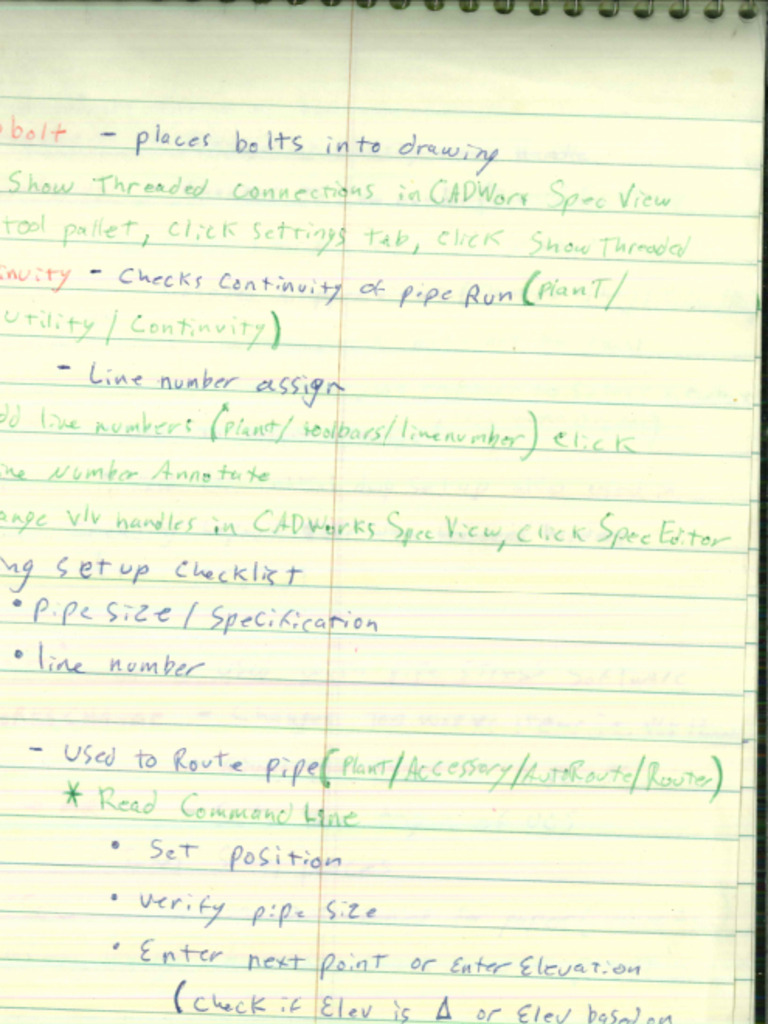 bolt - places bolts into drawing
Show Threaded connections in CADWorx Spec View
tool pallet, click settings tab, click Show Threaded
inuity - Checks Continuity of pipe Run (plant/
Utility / Continuity)
- Line number assign
dd line numbers (plant/ toolbars/linenumber) click
ine Number Annotate
ange vlv handles in CADWorks Spec View, click Spec Editor
ng setup checklist
• pipe size / Specification
• line number
- Used to Route pipe (Plant/Accessory/AutoRoute/Router)
* Read Command Line
• Set position
• verify pipe size
• Enter next point or Enter Elevation
(Check if Elev is Δ or Elev based on